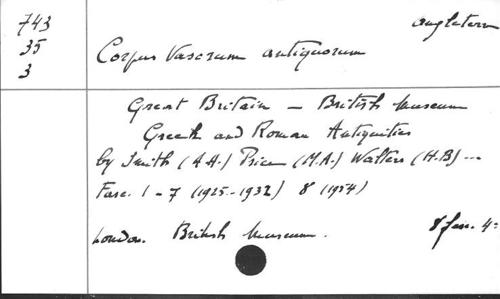 743
35
3
Angleterre
Corpus Vasorum antiquorum
Great Britain – British Museum
Greek and Roman Antiquities
by Smith (A.H.) Price (M.A.) Walters (H.B) ...
Fasc. 1 - 7 (1925-1932) 8 (1954)
London. British Museum. 8 fasc. 4°